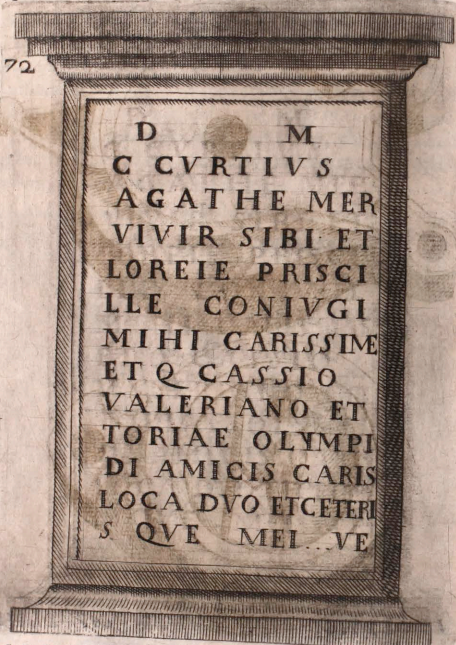 72
D M
C CVRTIVS
AGATHE MER
VIVIR SIBI ET
LOREIE PRISCI
LLE CONIVGI
MIHI CARISSIME
ET Q CASSIO
VALERIANO ET
TORIAE OLYMPI
DI AMICIS CARIS
LOCA DVO ETCETERI
S QVE MEI...VE